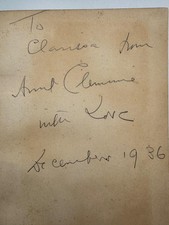 To
Clarissa from
Aunt Clemmie
with Love
December 1936